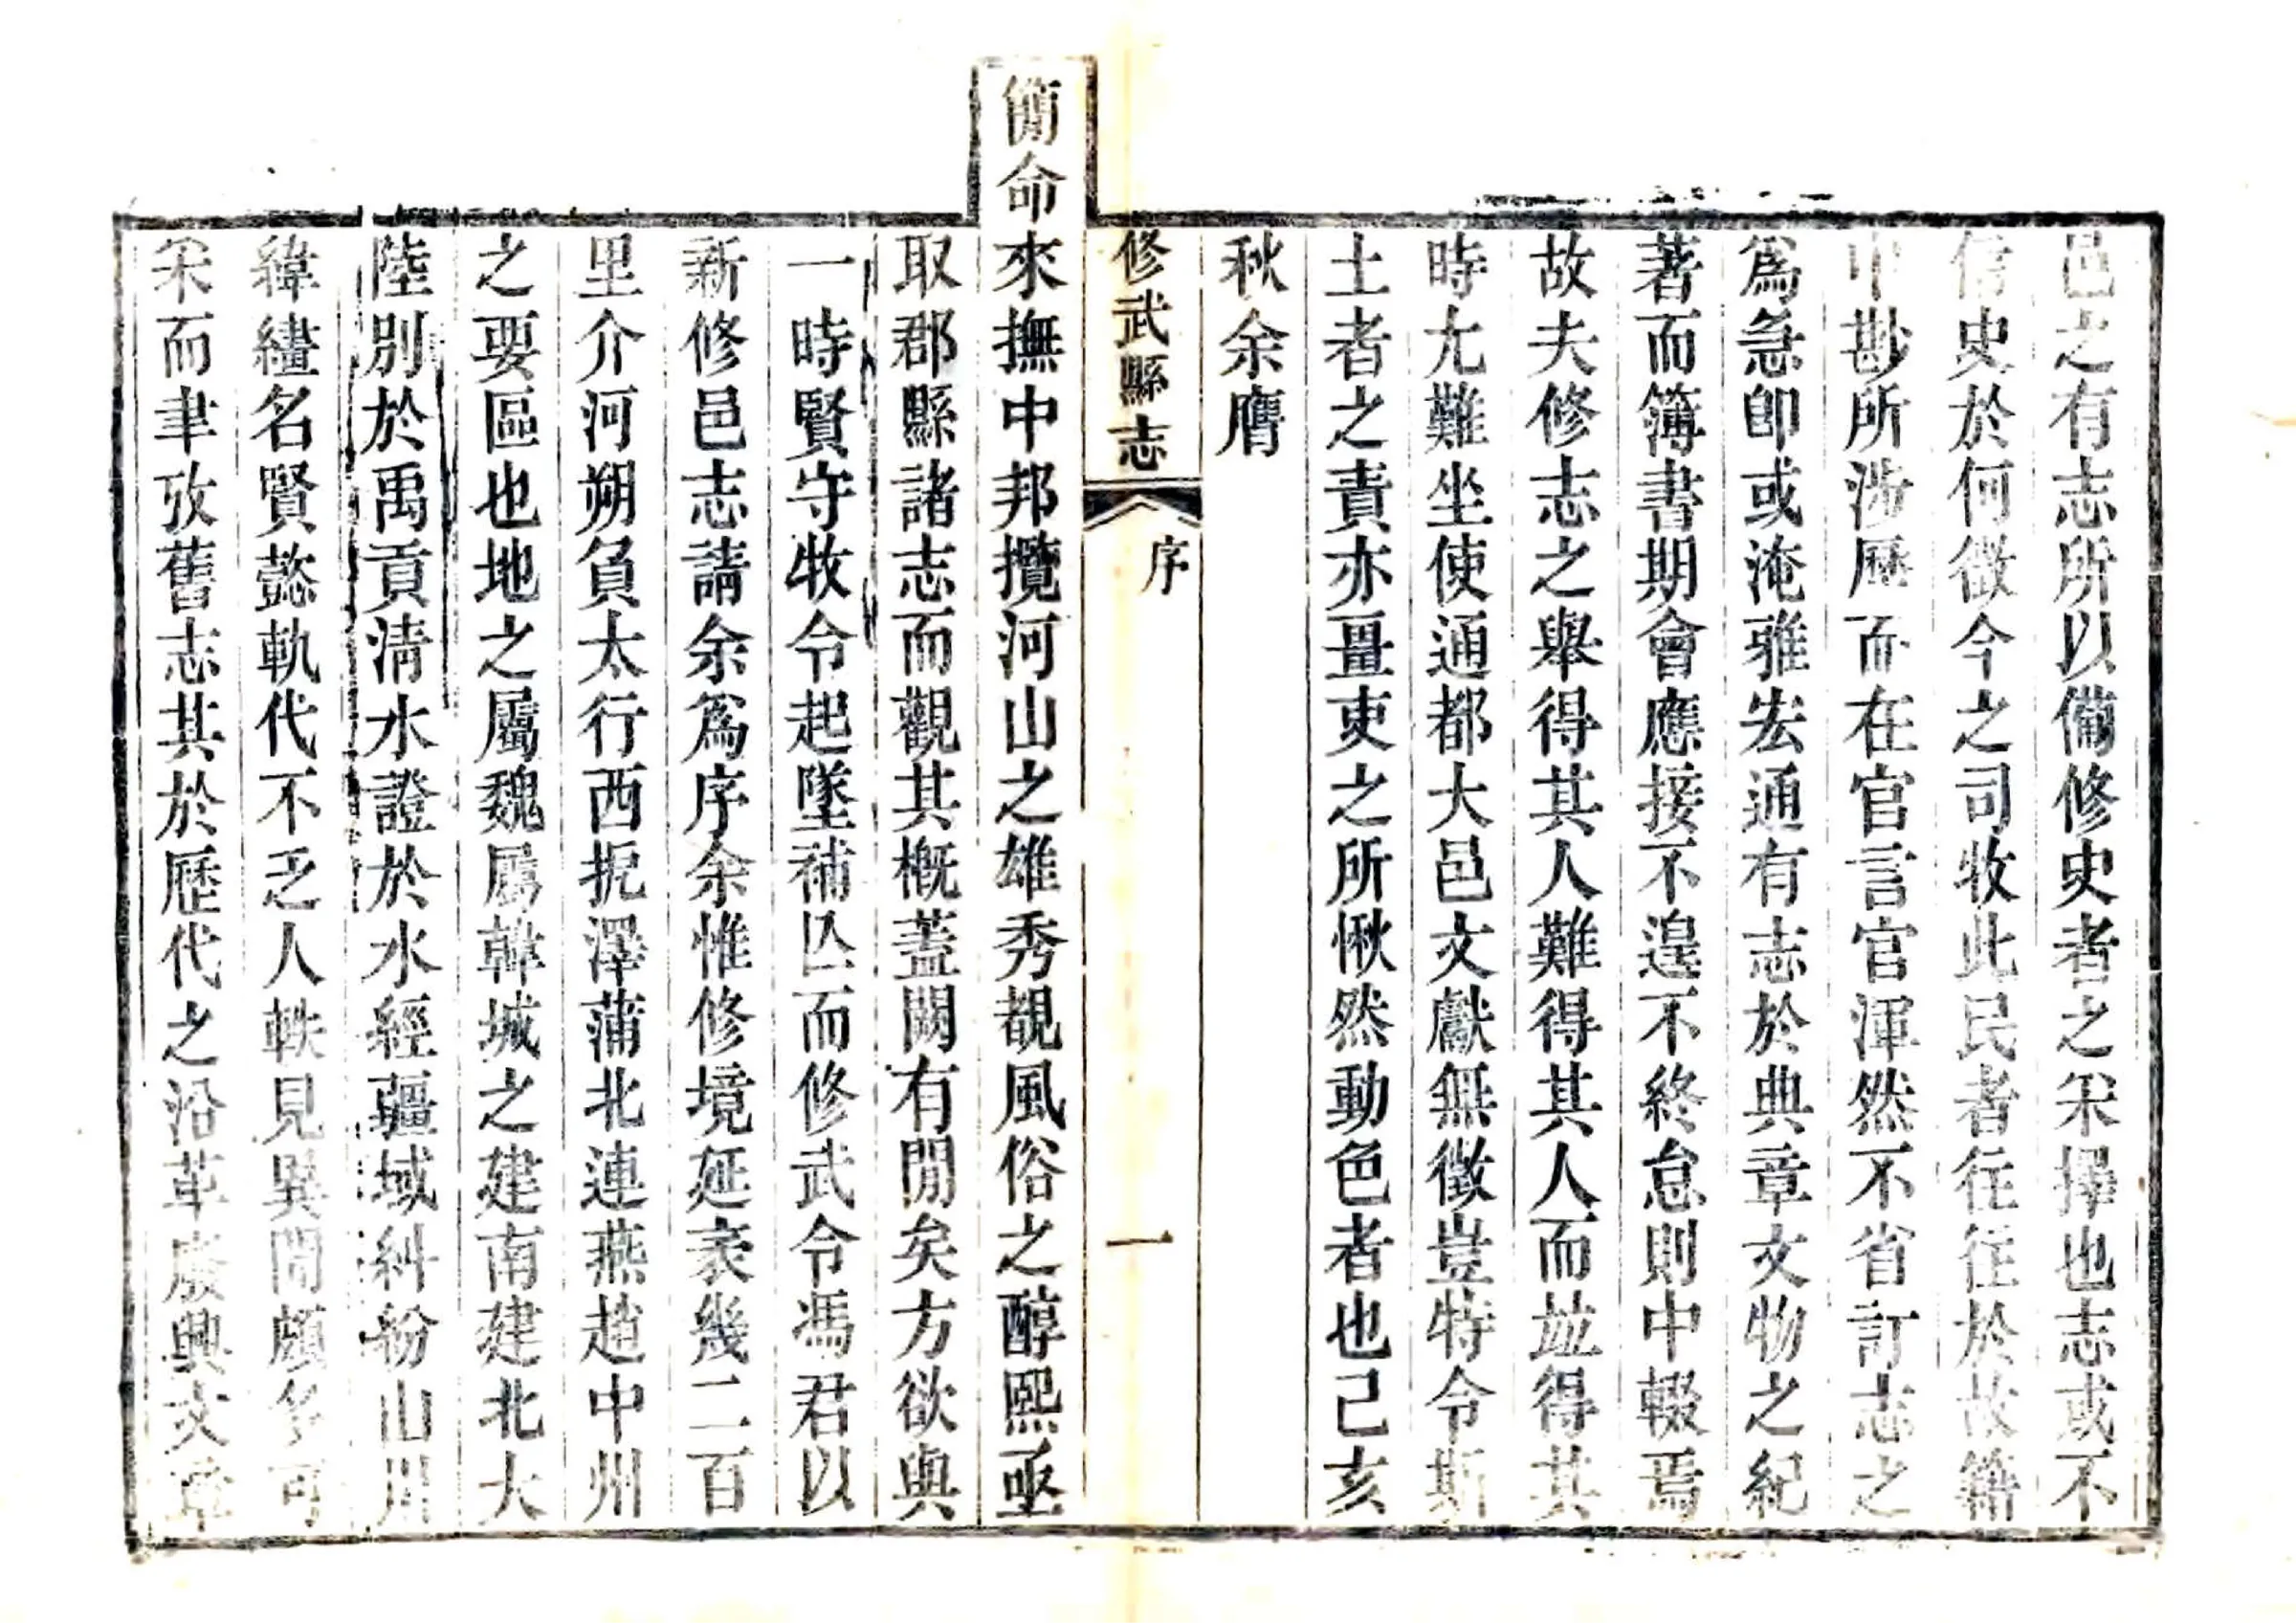 邑之有志所以備修史者之釆擇也志或不
信史於何徵今之司牧此民者往往於故籍
中尠所涉歷而在官言官渾然不省訂志之
爲急卽或淹雅宏通有志於典章文物之紀
著而簿書期會應接不遑不終怠則中輟焉
故夫修志之舉得其人難得其人而竝得其
時尤難坐使通都大邑文獻無徵豈特令斯
土者之責亦畺吏之所愀然動色者也己亥
秋余膺
修武縣志 序 一
簡命來撫中邦攬河山之雄秀覩風俗之醇熙亟
取郡縣諸志而觀其槪蓋闕有閒矣方欲與
一時賢守牧令起墜補亾而修武令馮君以
新修邑志請余爲序余惟修境延袤幾二百
里介河朔負太行西扼澤蒲北連燕趙中州
之要區也地之屬魏屬韓城之建南建北大
陸別於禹貢清水證於水經疆域糾紛山川
緯繣名賢懿軌代不乏人軼見異聞頗多可
釆而聿攷舊志其於歷代之沿革廢興文章